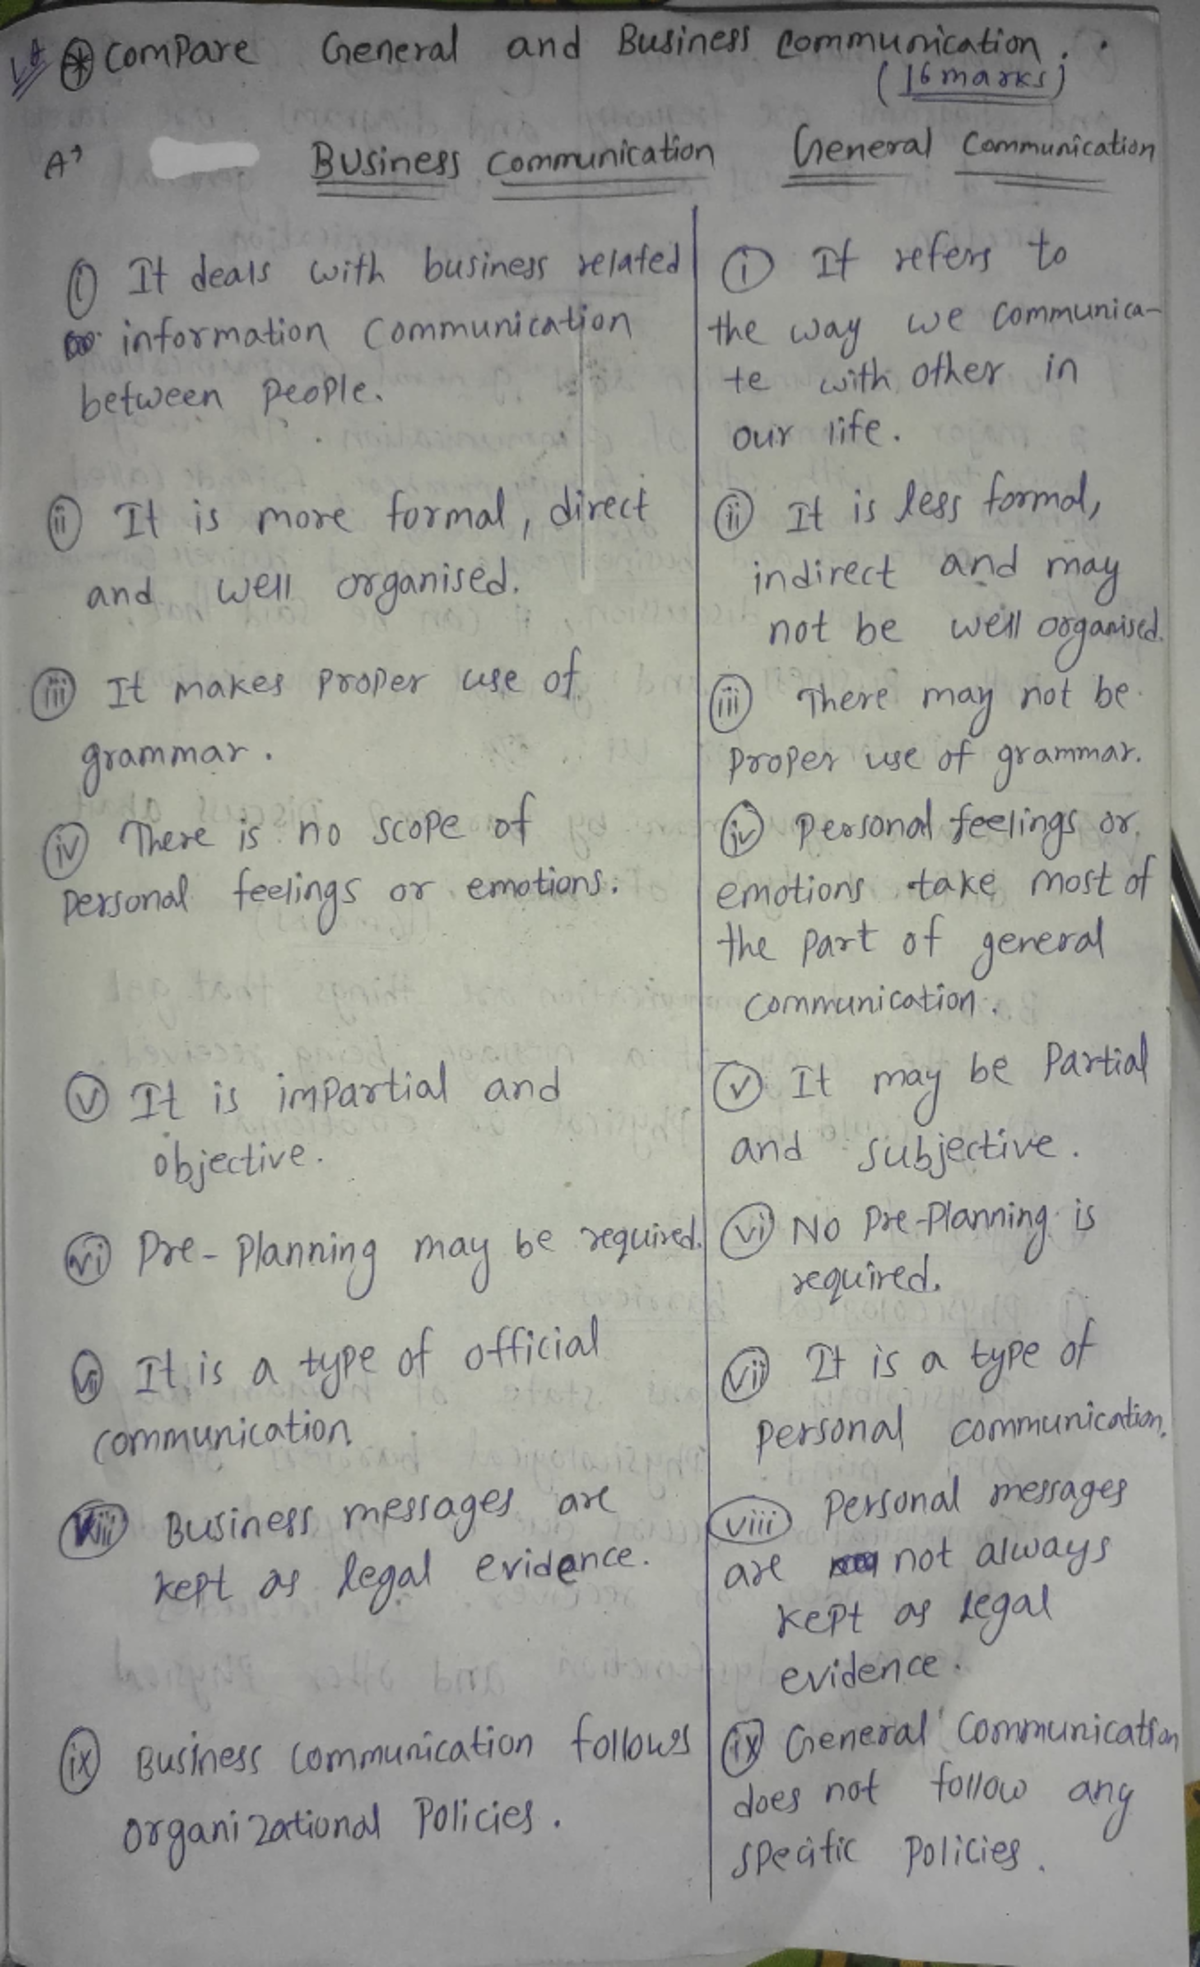 * Compare General and Business Communication.
(16 marks)
A→
Business Communication
(i) It deals with business related
information communication
between people.
(ii) It is more formal, direct
and well organised.
(iii) It makes proper use of
grammar.
(iv) There is no scope of
personal feelings or emotions.
(v) It is impartial and
objective.
(vi) Pre-Planning may be required.
(vii) It is a type of official
communication.
(viii) Business messages are
kept as legal evidence.
(ix) Business communication follows
organizational Policies.
General Communication
(i) It refers to
the way we communica-
te with other in
our life.
(ii) It is less formal,
indirect and may
not be well organised.
(iii) There may not be
proper use of grammar.
(iv) Personal feelings or
emotions take most of
the part of general
communication.
(v) It may be Partial
and subjective.
(vi) No Pre-Planning is
required.
(vii) It is a type of
personal communication.
(viii) Personal messages
are not always
kept as legal
evidence.
(ix) General Communication
does not follow any
specific policies.